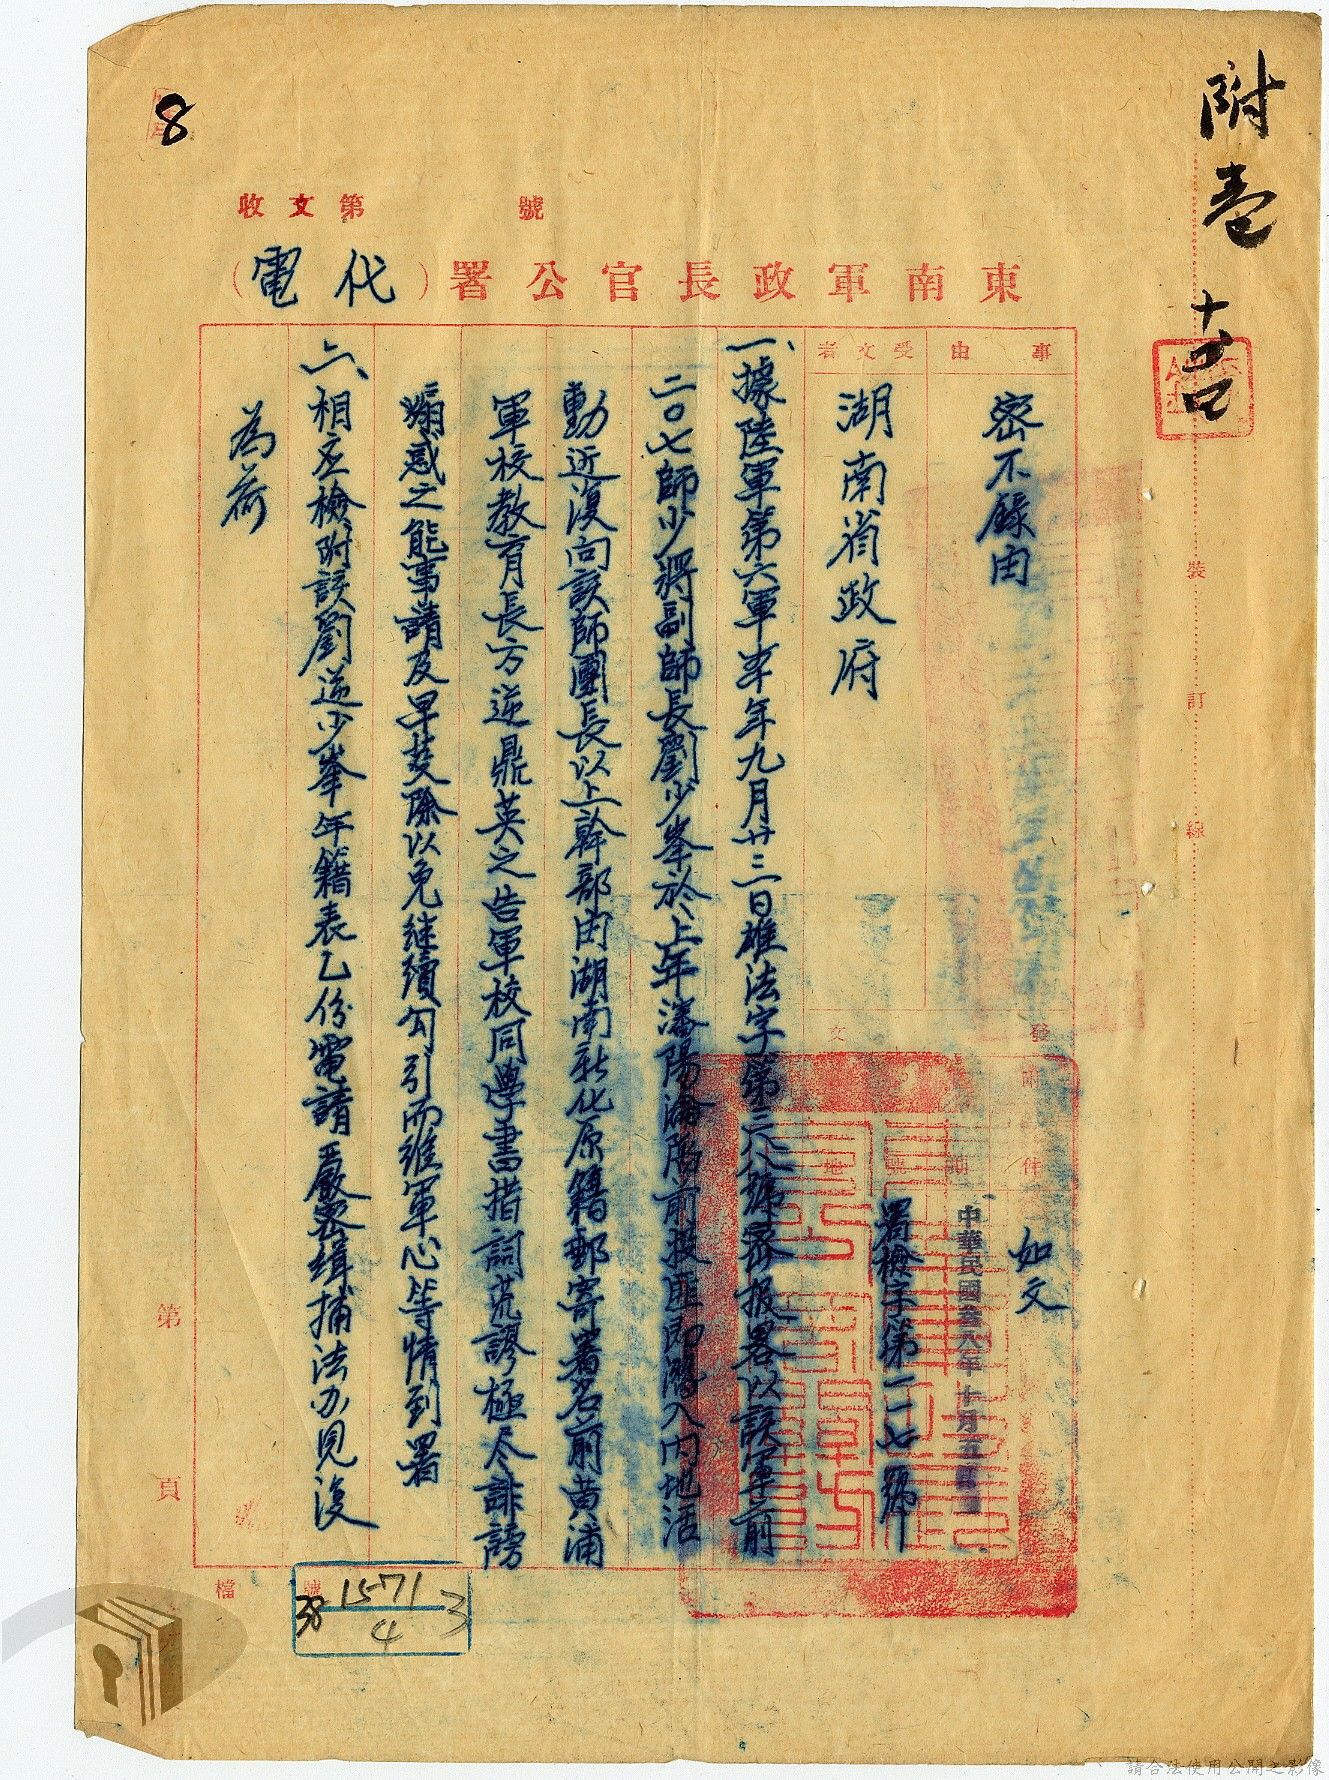 附卷
十
8
收文第 號
東南軍政長官公署（代電）
事由
密不錄由
受文者
湖南省政府
附件
如文
發文
日期
中華民國叁八年十月五日
字號
署檢字第一一七號
一、據陸軍第六軍本年九月廿三日雄法字第三八八號密报畧以該軍前
二〇七師少將副師長劉少峯於上年瀋陽淪陷前投匪即潛入内地活
動近復向該師團長以上幹部由湖南新化原籍郵寄署名前黄浦
軍校教育長方逆鼎英之告軍校同學書措詞荒謬極尽誹謗
煽惑之能事請及早芟除以免继續勾引而維軍心等情到署
二、相应檢附該劉逆少峯年籍表乙份電請嚴密缉捕法办見復
為荷
裝 訂 線
第 頁
檔 號
38 1571 3
4
請合法使用公開之影像